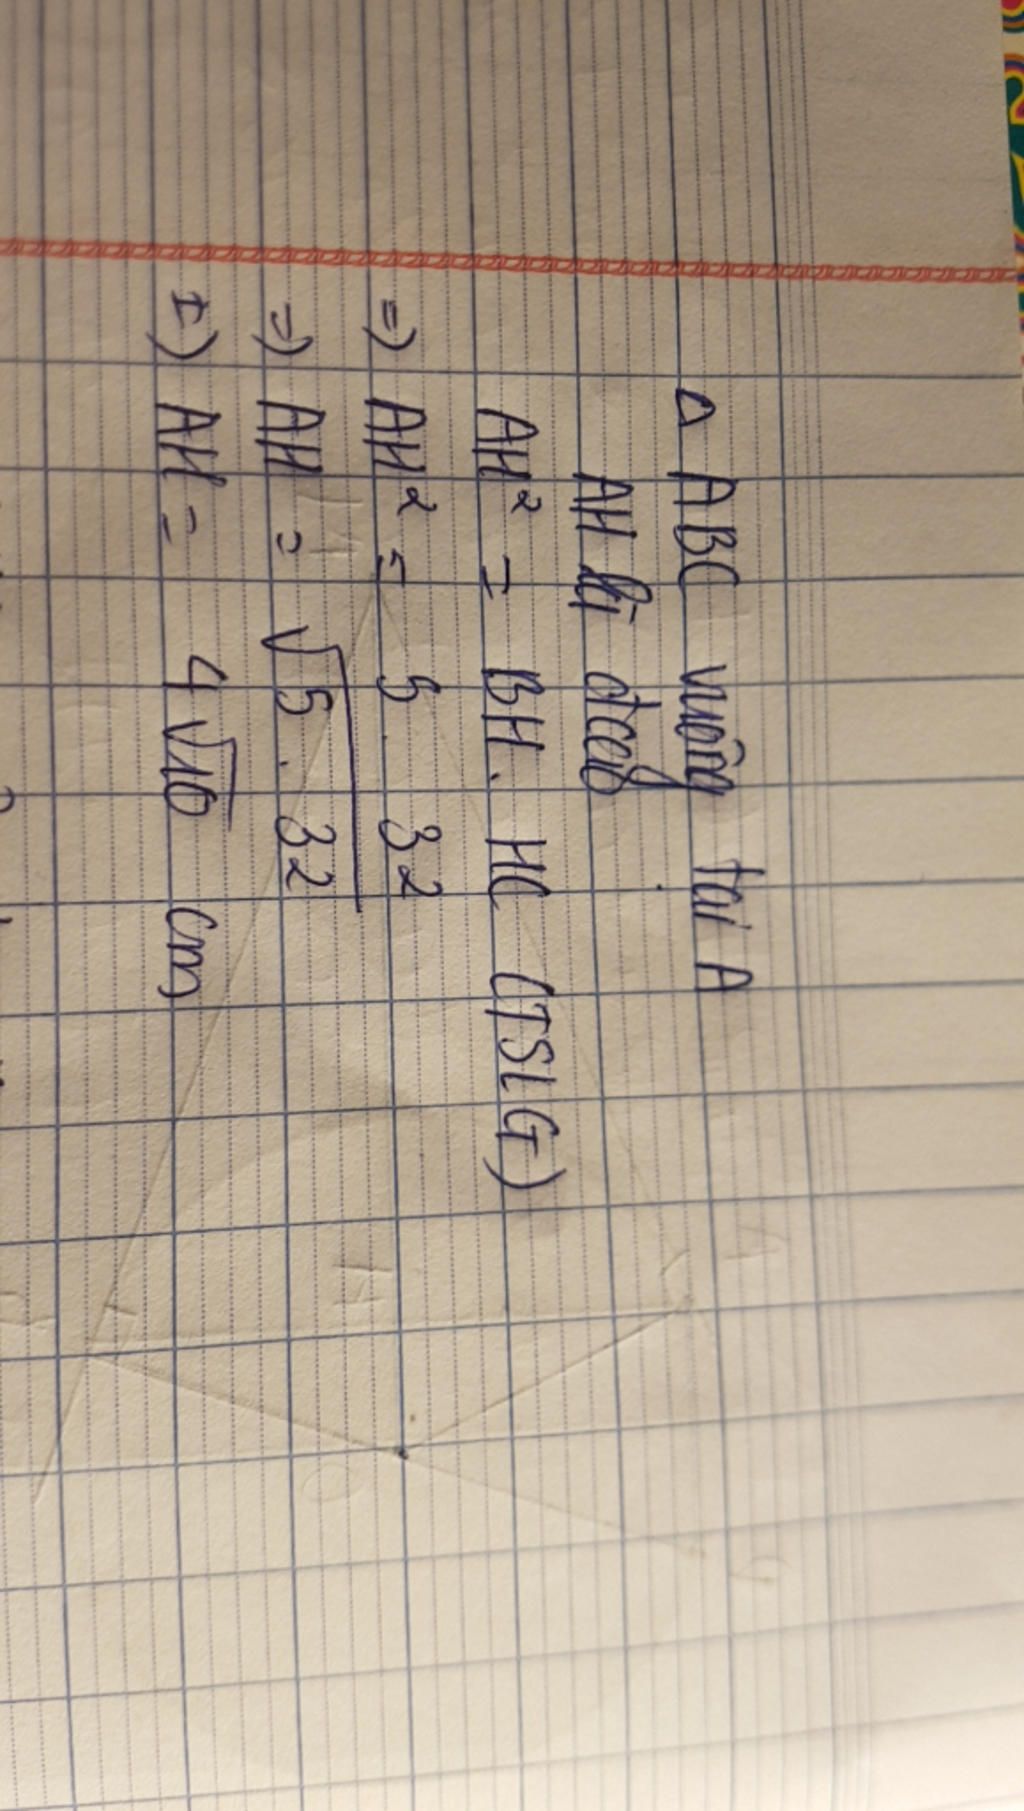 △ ABC vuông tại A
AH là đcao
AH² = BH. HC (TSLG)
=) AH² = 5 . 32
=) AH = √5 . 32
=) AH = 4√10 cm